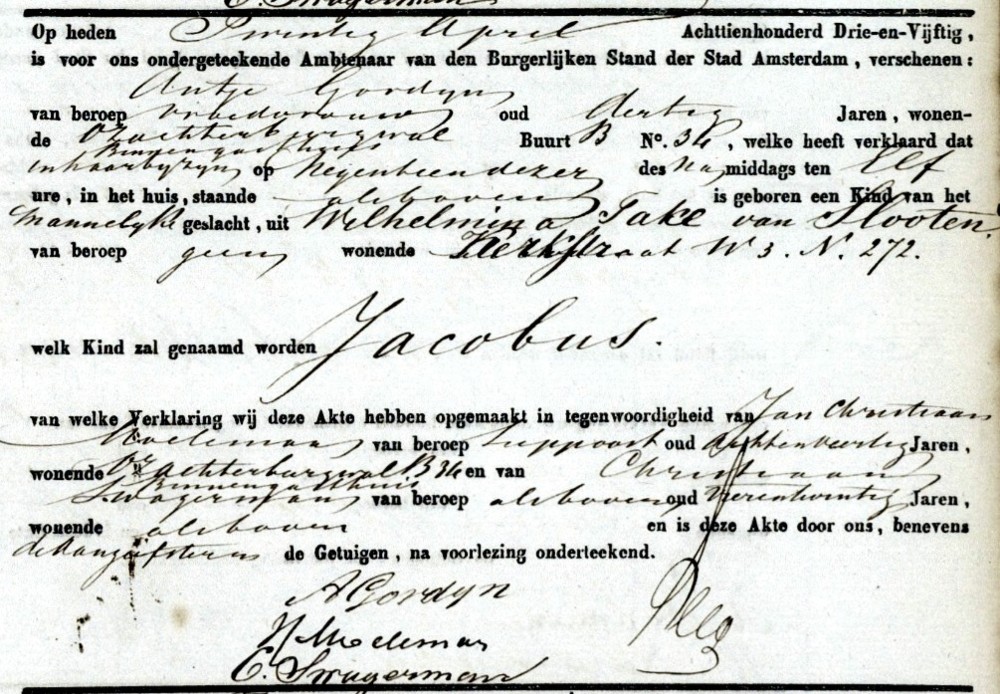 C. Swagerman
Op heden Twintig April Achttienhonderd Drie-en-Vijftig,
is voor ons ondergeteekende Ambtenaar van den Burgerlijken Stand der Stad Amsterdam, verschenen:
Antje Gordyn
van beroep vroedvrouw oud dertig Jaren, wonen-
de OZachterburgwal Buurt B No. 34, welke heeft verklaard dat
Binnengasthuis
in haar byzyn op Negentien dezer des na middags ten Elf
ure, in het huis, staande als boven is geboren een Kind van het
Mannelyke geslacht, uit Wilhelmina Take van Slooten.
van beroep geen wonende Kerkstraat W 3. N. 272.
welk Kind zal genaamd worden Jacobus.
van welke Verklaring wij deze Akte hebben opgemaakt in tegenwoordigheid van Jan Christiaan
Moeleman van beroep Suppoost oud achtenveertig Jaren,
wonende OZachterburgwal B 34 en van Christiaan
Binnengasthuis
Swagerman van beroep als boven oud Jaren,
wonende als boven en is deze Akte door ons, benevens
de aangeefster en de Getuigen, na voorlezing onderteekend.
A Gordyn
Moeleman
C. Swagerman